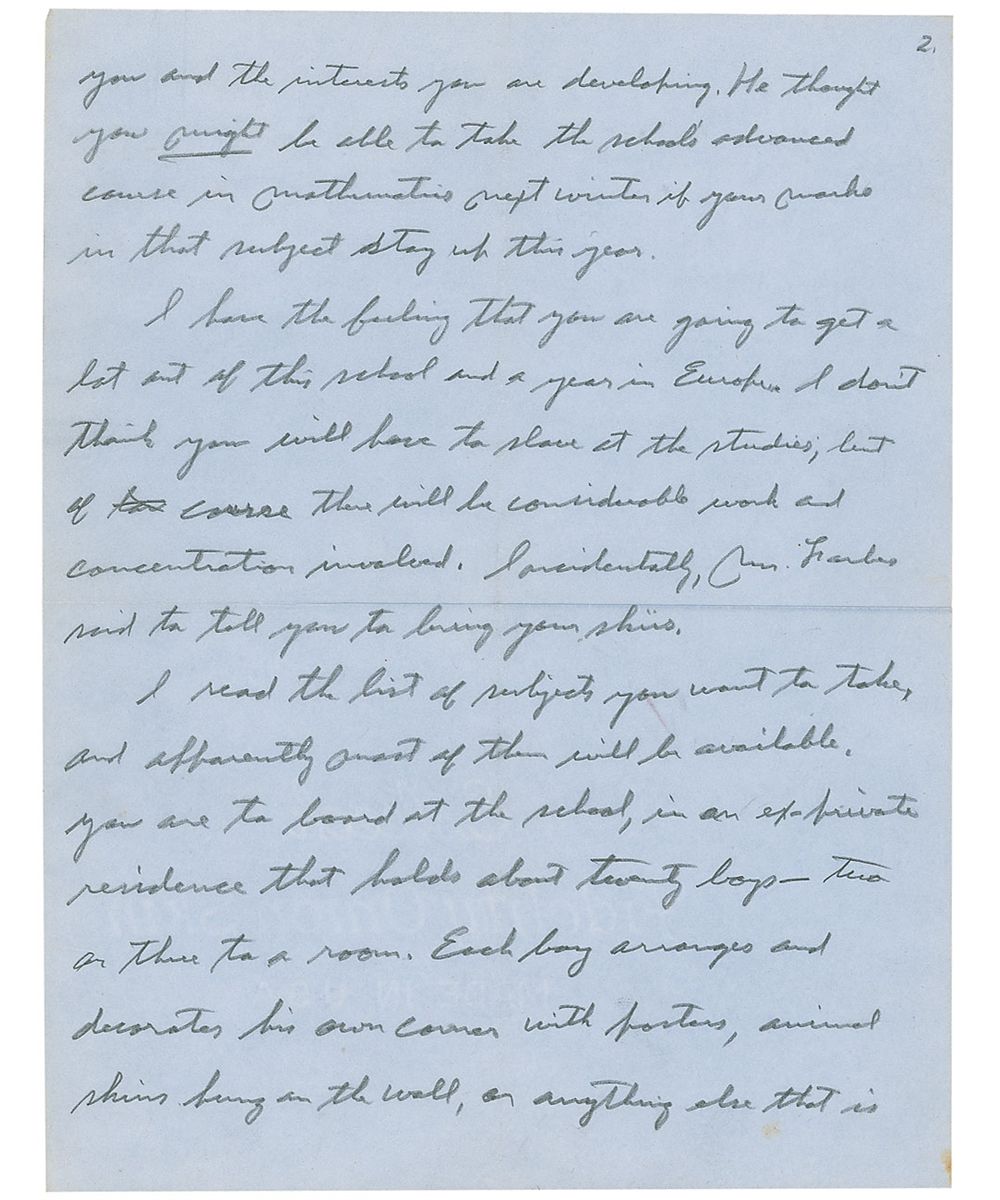 2.
you and the interests you are developing. He thought
you might be able to take the school's advanced
course in mathematics next winter if your marks
in that subject stay up this year.
I have the feeling that you are going to get a
lot out of this school and a year in Europe. I don't
think you will have to slave at the studies, but
of course there will be considerable work and
concentration involved. Incidentally, Mr. Forbes
said to tell you to bring your skiis.
I read the list of subjects you want to take,
and apparently most of them will be available.
you are to board at the school, in an ex-private
residence that holds about twenty boys — two
or three to a room. Each boy arranges and
decorates his own corner with posters, animal
skins hung on the wall, or anything else that is